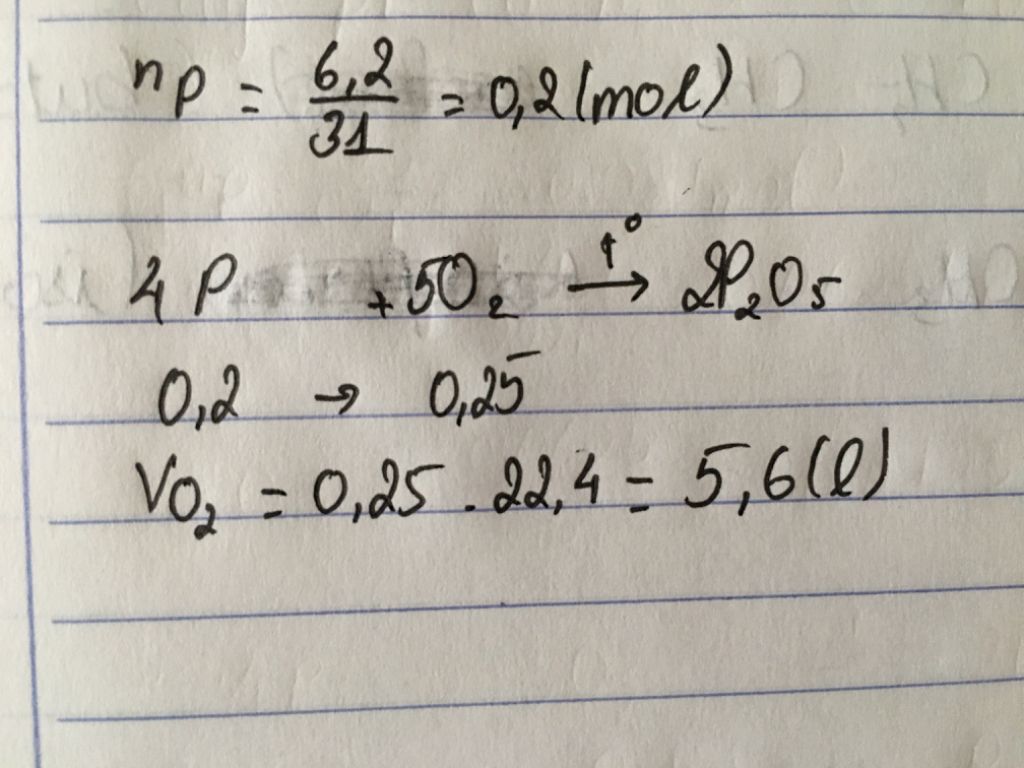 nP = 6,2/31 = 0,2 (mol)
4P + 5O₂ →(t°) 2P₂O₅
0,2 → 0,25
VO₂ = 0,25 . 22,4 = 5,6 (l)